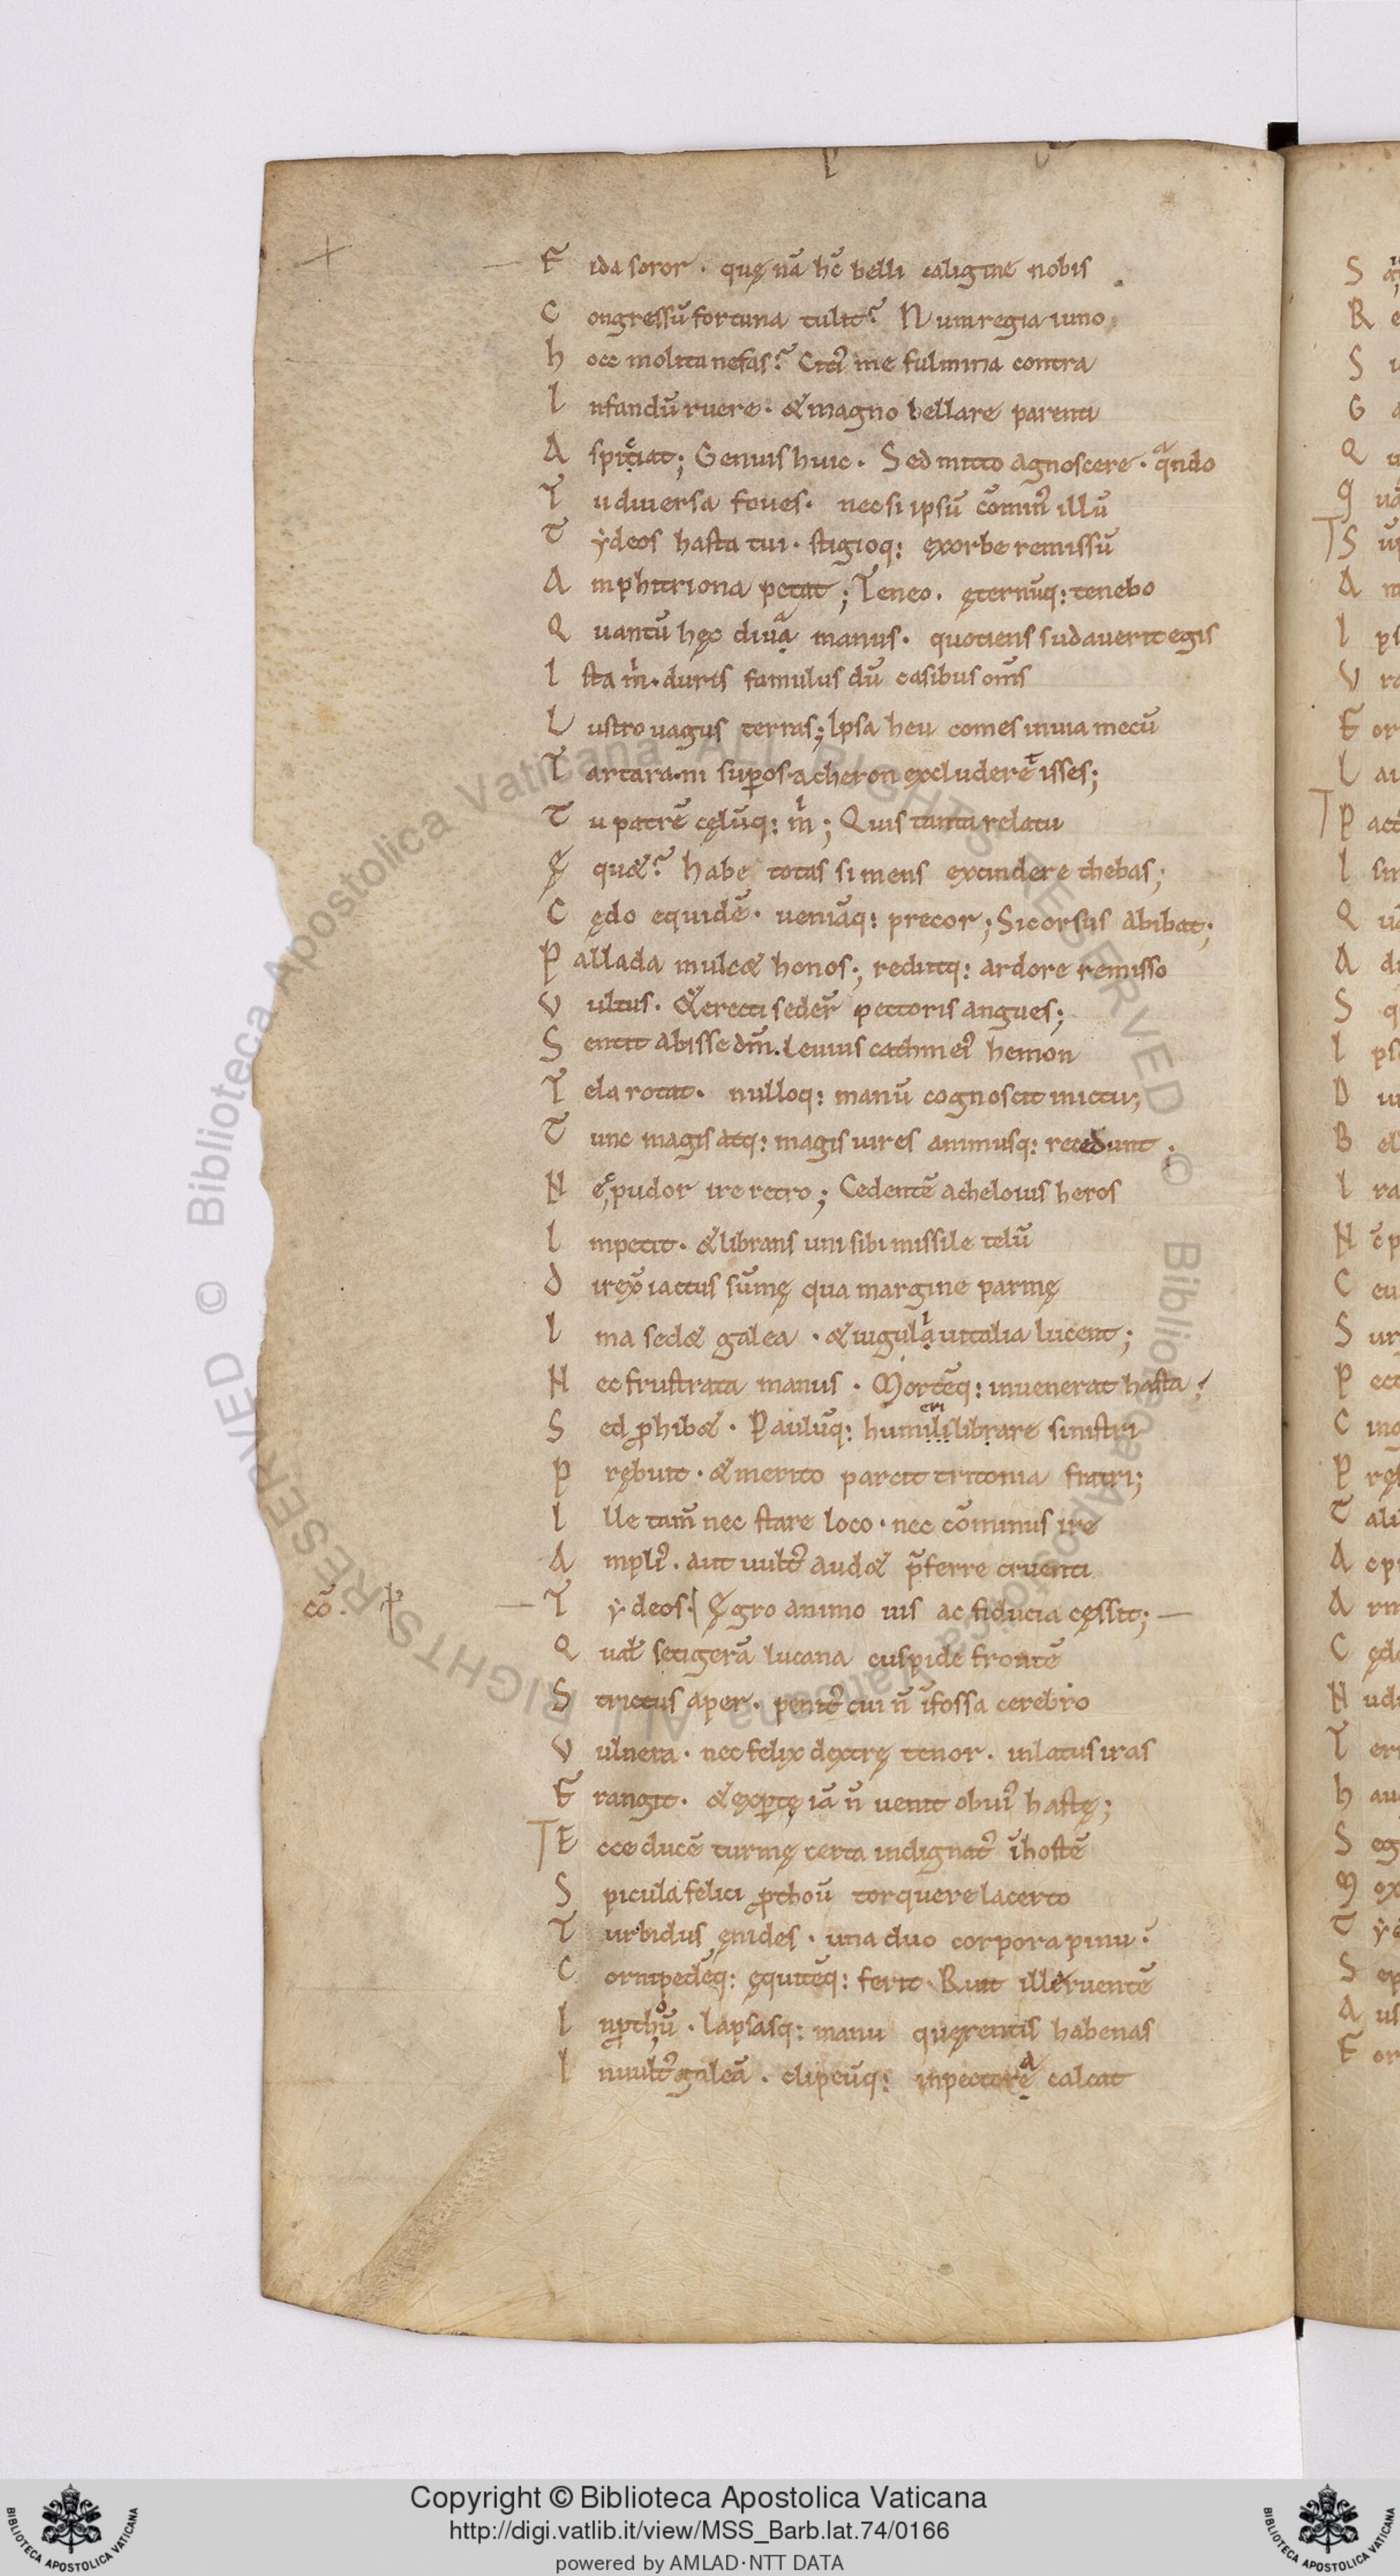 F ida soror · quę nā hc̄ belli caligine nobis
C ongressū fortuna tulit? Num regia iuno
h occ molita nefas? Citi᷒ me fulmina contra
I nfandū ruere · & magno bellare parenti
A spiciat; Genus huic · Sed mitto agnoscere · qͣndo
T u diuersa foues · nec si ipsū comin᷒ illū
T ẏdeos hasta tui · stigioq: exorbe remissū
A mphitriona petat; Teneo · ęternūq: tenebo
Q uantū hęc diuā manus · quotiens sudauerit egis
I sta m̄ · duris famulus dū casibus om̄s
L ustro uagus terras; Ipsa heu comes inuia mecū
T artara · ni suꝑos acheron excluderet isses;
T u patrē cęlūq: m̄; Quis tanta relatu
Ę qu&? habe totas si mens excindere thebas;
C ędo equidē · ueniāq: precor; Sic orsus abibat;
P allada mulc& honos; reditq: ardore remisso
V ultus · & erecti seder̄ pectoris angues;
S entit abisse dm̄. Leuius cathmei᷒ hemon
T ela rotat · nulloq: manū cognoscit inictu;
T unc magis atq: magis uires animusq: recedunt;
N ec pudor ire retro; Cedentē acheloius heros
I mpetit · & librans uni sibi missile telū
D irexͭ iactus sūmę qua margine parmę
I ma sed& galea · & iugula uitalia lucent;
N ec frustrata manus · Mortēq: inuenerat hasta;
S ed ꝓhib& · Paulūq: humeri librare sinistri
P rębuit · & merito parcit tritonia fratri;
I lle tam̄ nec stare loco · nec cōminus ire
A mpli᷒ · aut uult᷒ aud& p̄ferre cruenti
cō. T ẏdeos · Ęgro animo uis ac fiducia cęssit;
Q uał setigerā lucana cuspide frontē
S trictus aper · penit᷒ cui n̄ īfossa cerebro
V ulnera · nec felix dextrę tenor · inlatus iras
F rangit · & exꝑtę iā n̄ uenit obui᷒ hastę;
E cce ducē turmę certa indignat᷒ ī hostē
S picula felici ꝓthoū torquere lacerto
T urbidus ęnides · una duo corpora pinu
C ornipedēq: equitēq: ferit · Ruit ille ruentē
I n ꝓthoū · lapsasq: manu quęrentis habenas
I n uult᷒ galeā · clipeūq: in pectora calcat
Copyright © Biblioteca Apostolica Vaticana
http://digi.vatlib.it/view/MSS_Barb.lat.74/0166
powered by AMLAD·NTT DATA